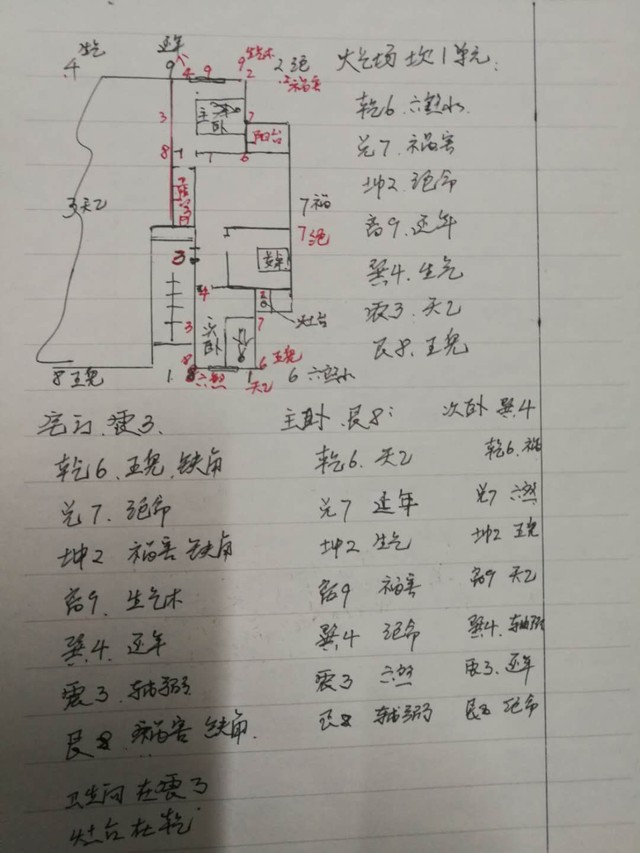 生气 4
延年 9
4 9
9 生气木 2
2 绝
2 祸害
火气场 坎1单元:
乾6 六煞水
兑7 祸害
坤2 绝命
离9 延年
巽4 生气
震3 天乙
艮8 五鬼
主卧
3
7
阳台
8 1 1 6
3天乙
7 祸
7 绝
3
4
2
灶台
次卧
3
7
8
6 五鬼
8 五鬼
1 8 六煞
1 天乙
6 六煞水
宅门 震3
乾6 五鬼 缺角
兑7 绝命
坤2 祸害 缺角
离9 生气木
巽4 延年
震3 辅弼
艮8 祸害 缺角
卫生间在震3
灶台在乾
主卧 艮8:
乾6 天乙
兑7 延年
坤2 生气
离9 祸害
巽4 绝命
震3 六煞
艮8 辅弼
次卧 巽4
乾6 祸
兑7 六煞
坤2 五鬼
离9 天乙
巽4 辅弼
震3 延年
艮8 绝命